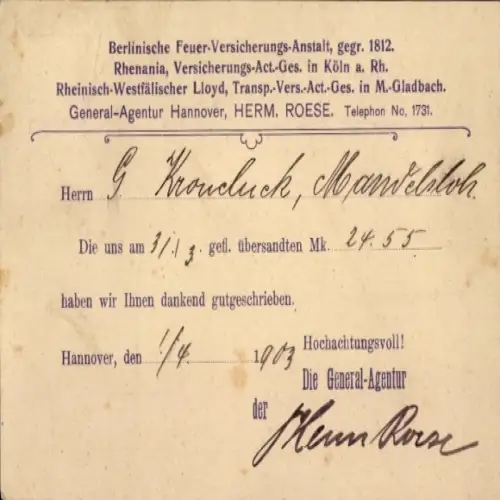 Berlinische Feuer-Versicherungs-Anstalt, gegr. 1812.
Rhenania, Versicherungs-Act.-Ges. in Köln a. Rh.
Rheinisch-Westfälischer Lloyd, Transp.-Vers.-Act.-Ges. in M.-Gladbach.
General-Agentur Hannover, HERM. ROESE. Telephon No. 1731.
Herrn G. Mandelsloh.
Die uns am 31./3. gefl. übersandten Mk. 24.55
haben wir Ihnen dankend gutgeschrieben.
Hannover, den 1/4. 1903
Hochachtungsvoll!
Die General-Agentur
der
Herm Roese